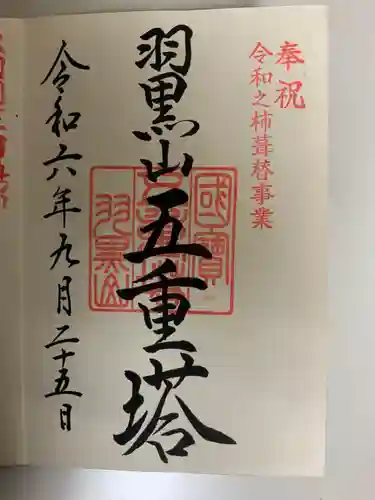 奉祝
令和之柿葺替事業
羽黒山五重塔
國寶
羽黒山
令和六年九月二十五日